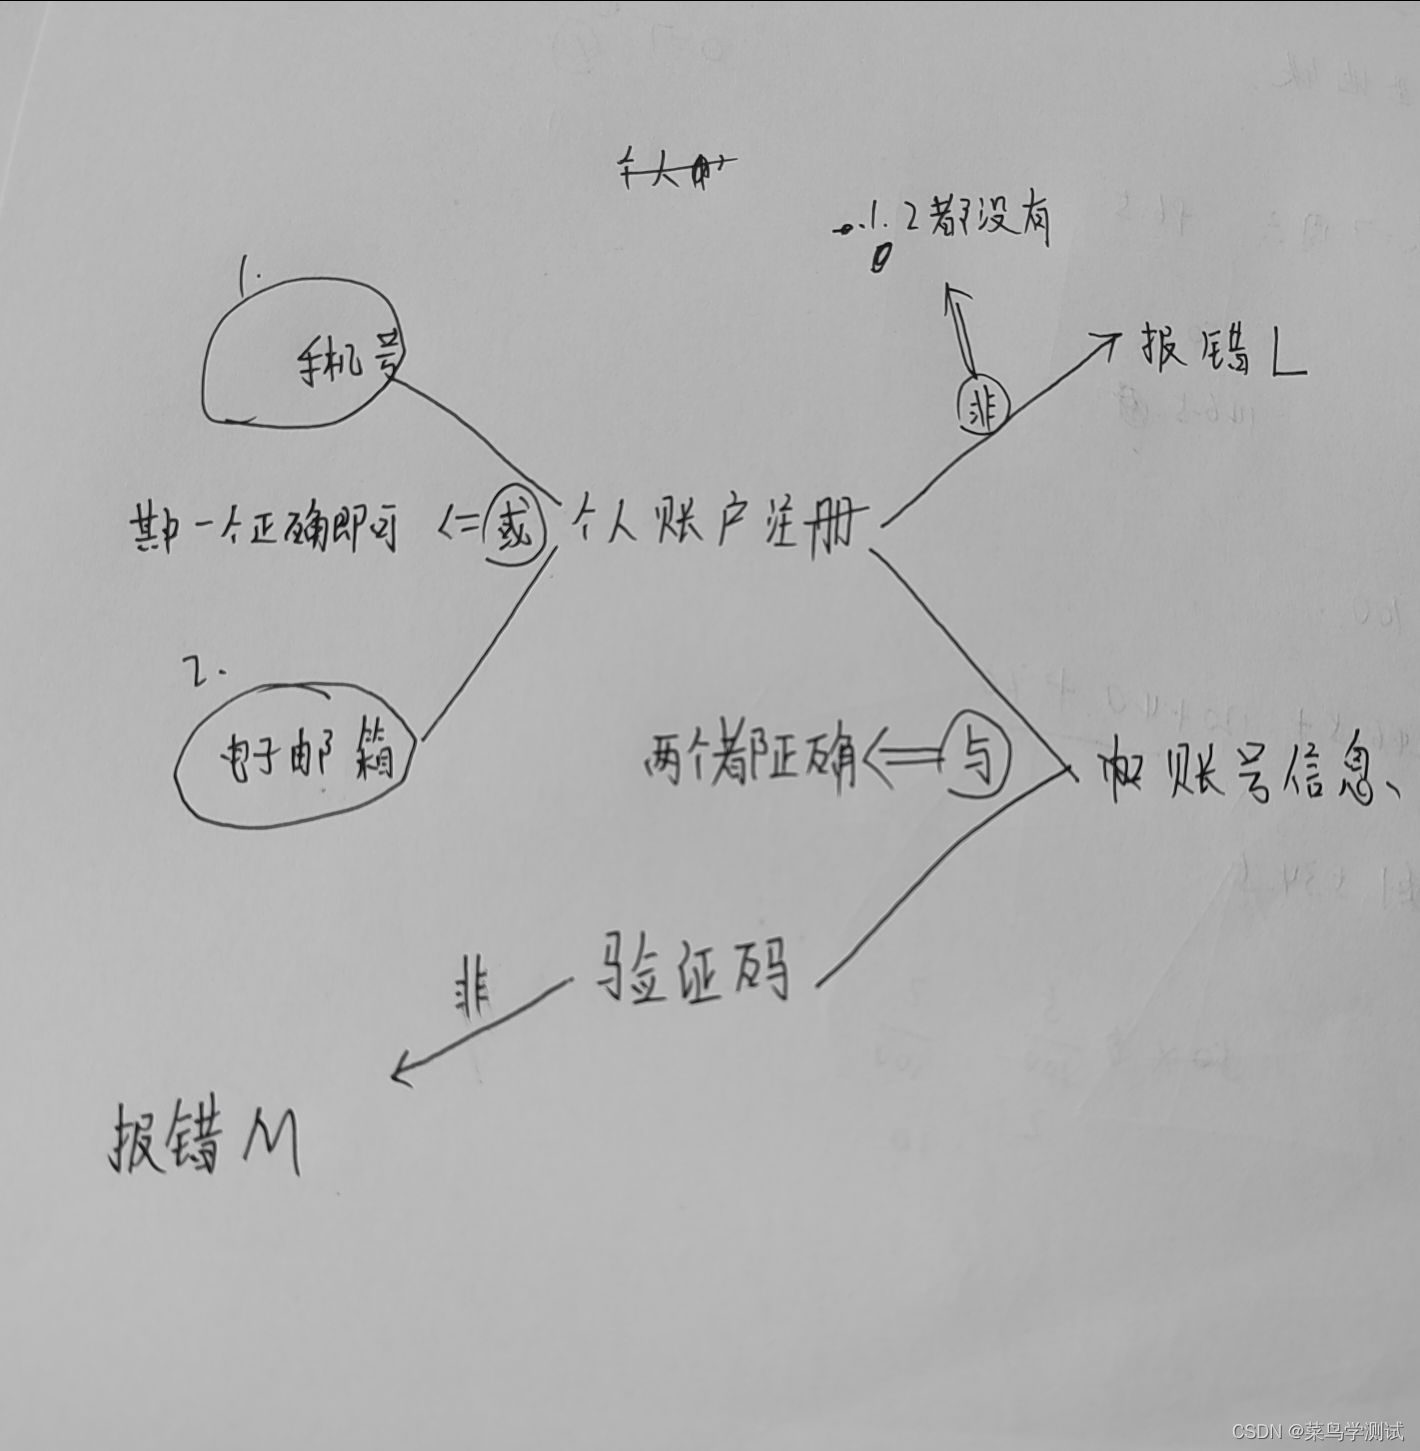 1. 2都没有
1.
手机号
非
报错L
其中一个正确即可 <= 或
个人账户注册
2.
电子邮箱
两个都正确
与
账号信息、
非
验证码
报错M
CSDN @菜鸟学测试